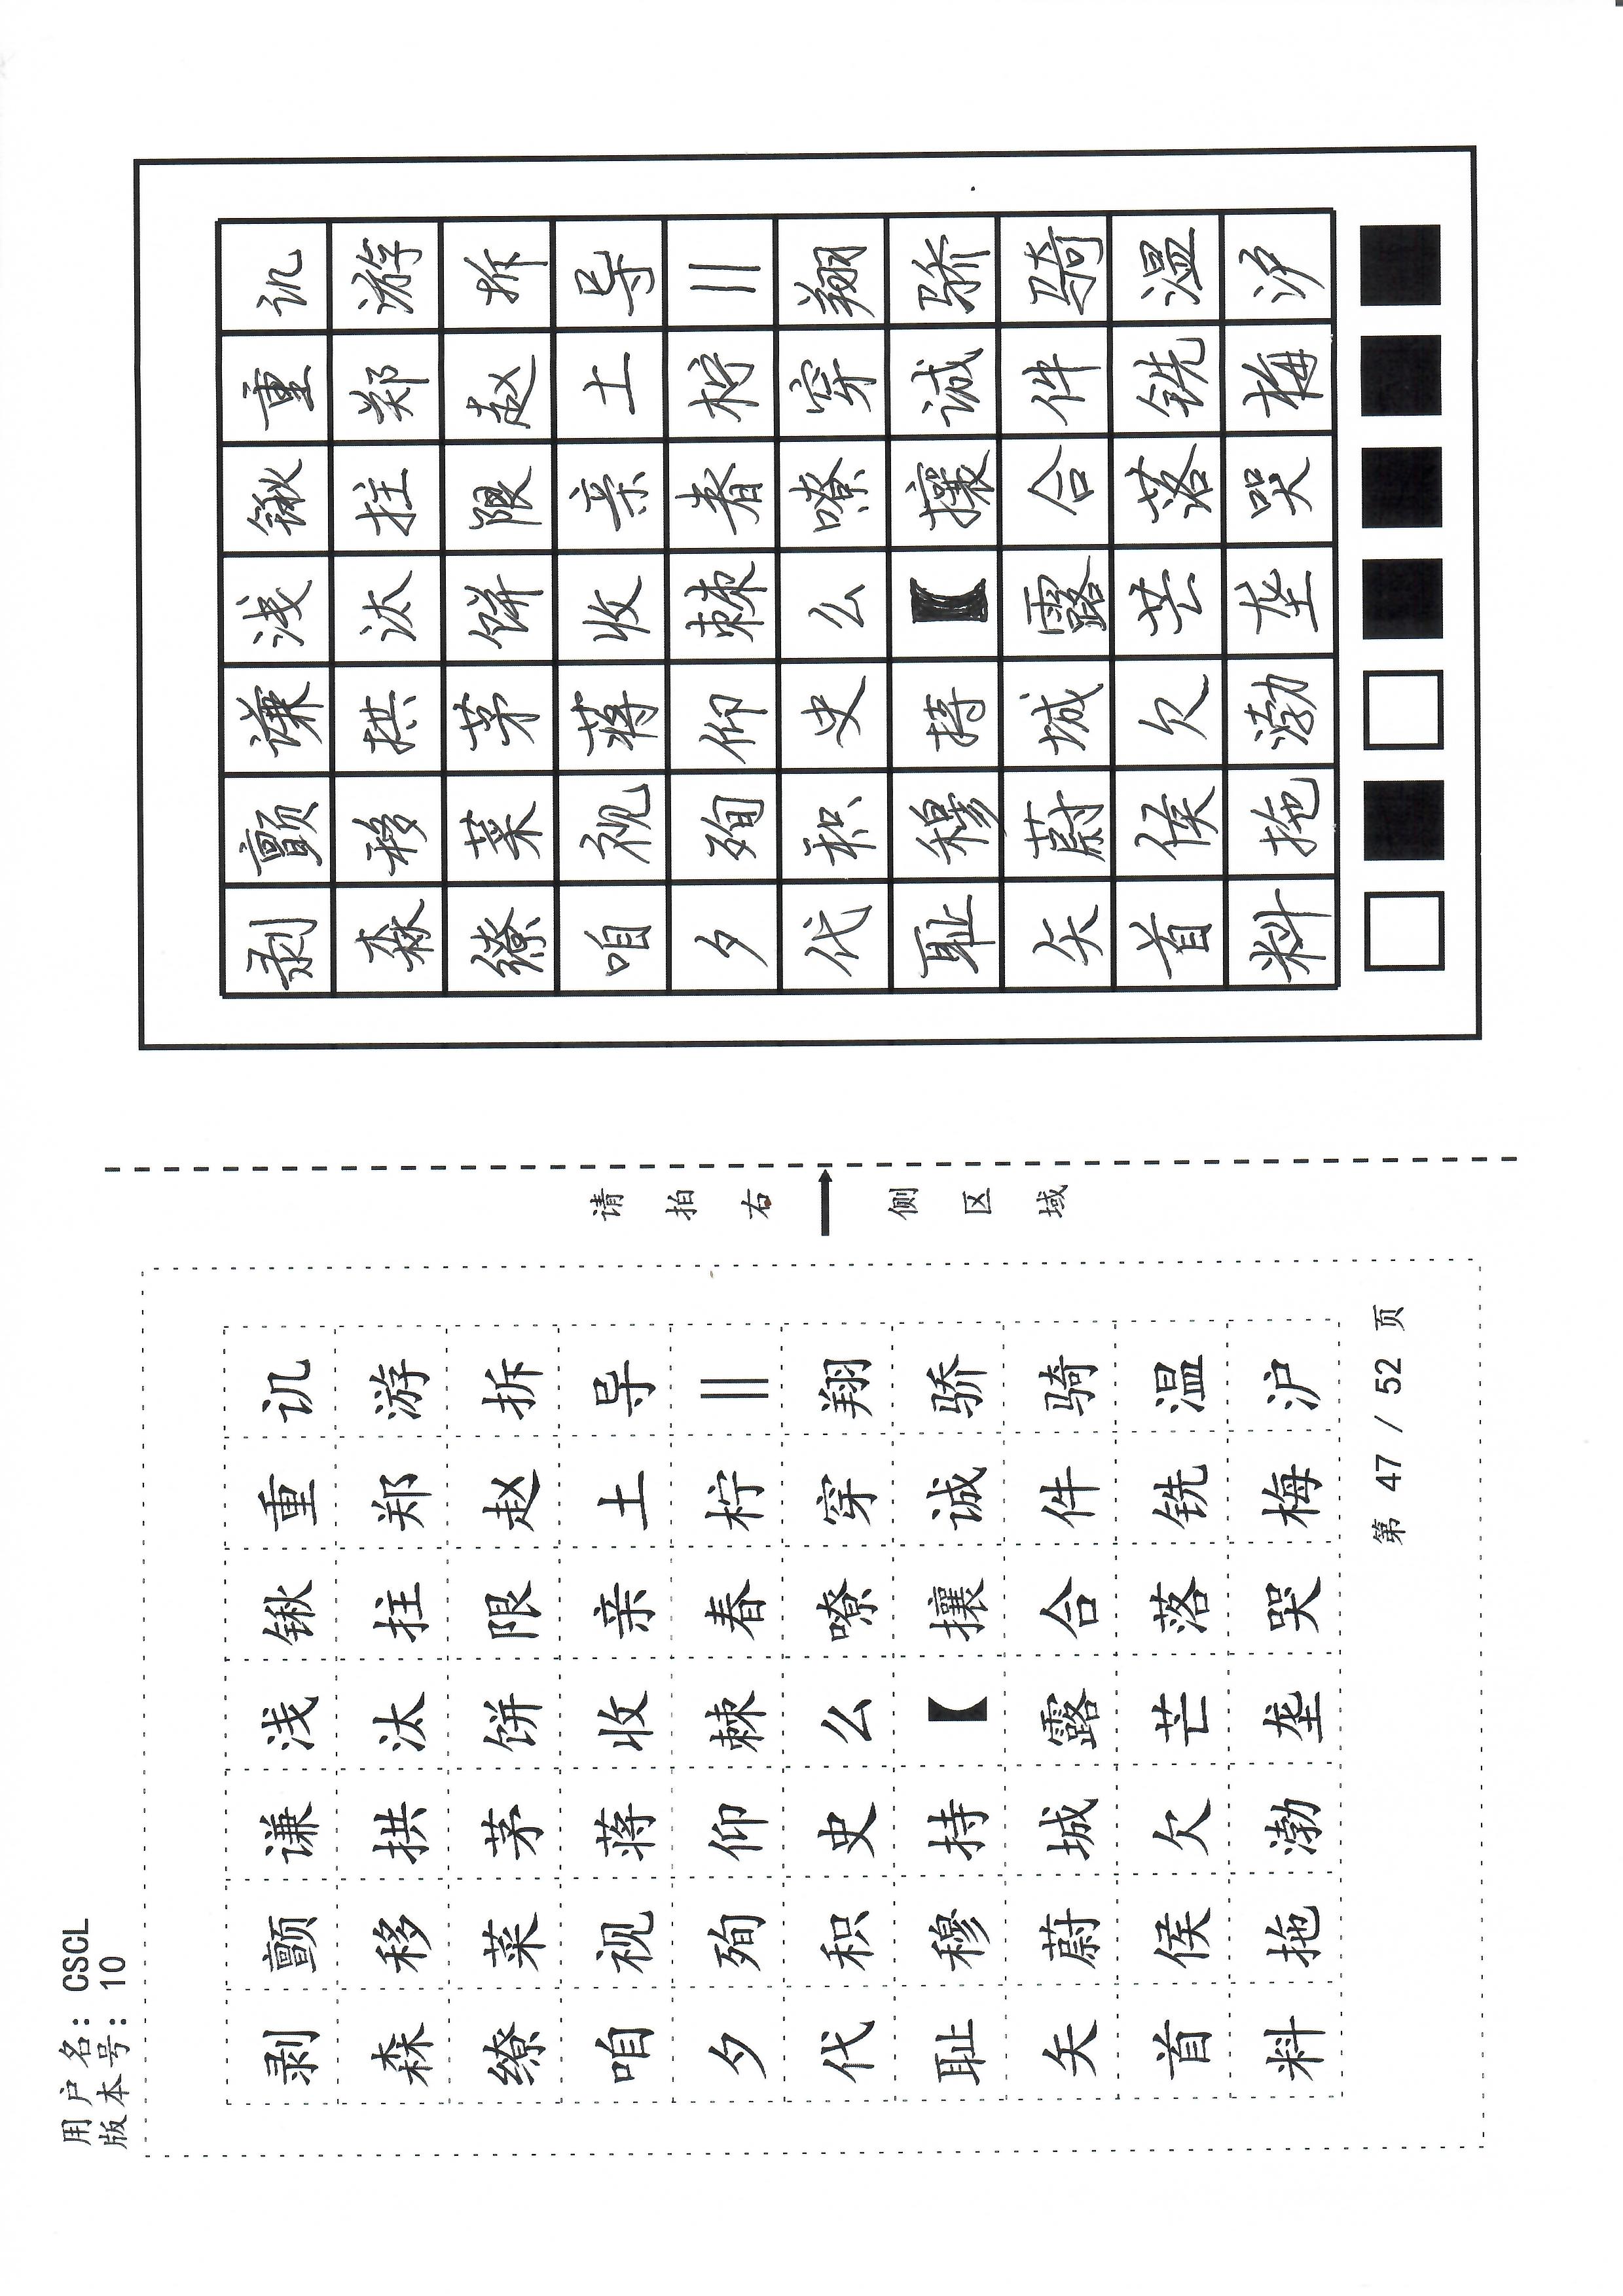 用户名：CSCL
版本号：10
剥颤谦浅锹重讥
森移拱汰拄郑游
缭菜茅饼限赵拆
咱视蒋收亲土导
夕殉仰棘春柠‖
代积史么嘹穿翔
耻穆持【攘诚骄
矢蔚城露合件骑
首侯欠芒落铣温
料拖渤垄哭梅沪
第 47 / 52 页
请拍右→侧区域
剥颤谦浅锹重讥
森移拱汰拄郑游
缭菜茅饼限赵拆
咱视蒋收亲土导
夕殉仰棘春柠‖
代积史么嘹穿翔
耻穆持【攘诚骄
矢蔚城露合件骑
首侯欠芒落铣温
料拖渤垄哭梅沪